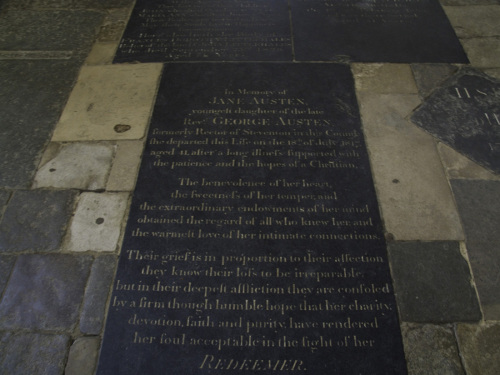 In Memory of
JANE AUSTEN,
youngest daughter of the late
Revd. GEORGE AUSTEN,
formerly Rector of Steventon in this County
she departed this Life on the 18th of July 1817,
aged 41, after a long illness supported with
the patience and the hopes of a Christian.
The benevolence of her heart,
the sweetness of her temper, and
the extraordinary endowments of her mind
obtained the regard of all who knew her, and
the warmest love of her intimate connections.
Their grief is in proportion to their affection
they know their loss to be irreparable,
but in their deepest affliction they are consoled
by a firm though humble hope that her charity,
devotion, faith and purity, have rendered
her soul acceptable in the sight of her
REDEEMER.